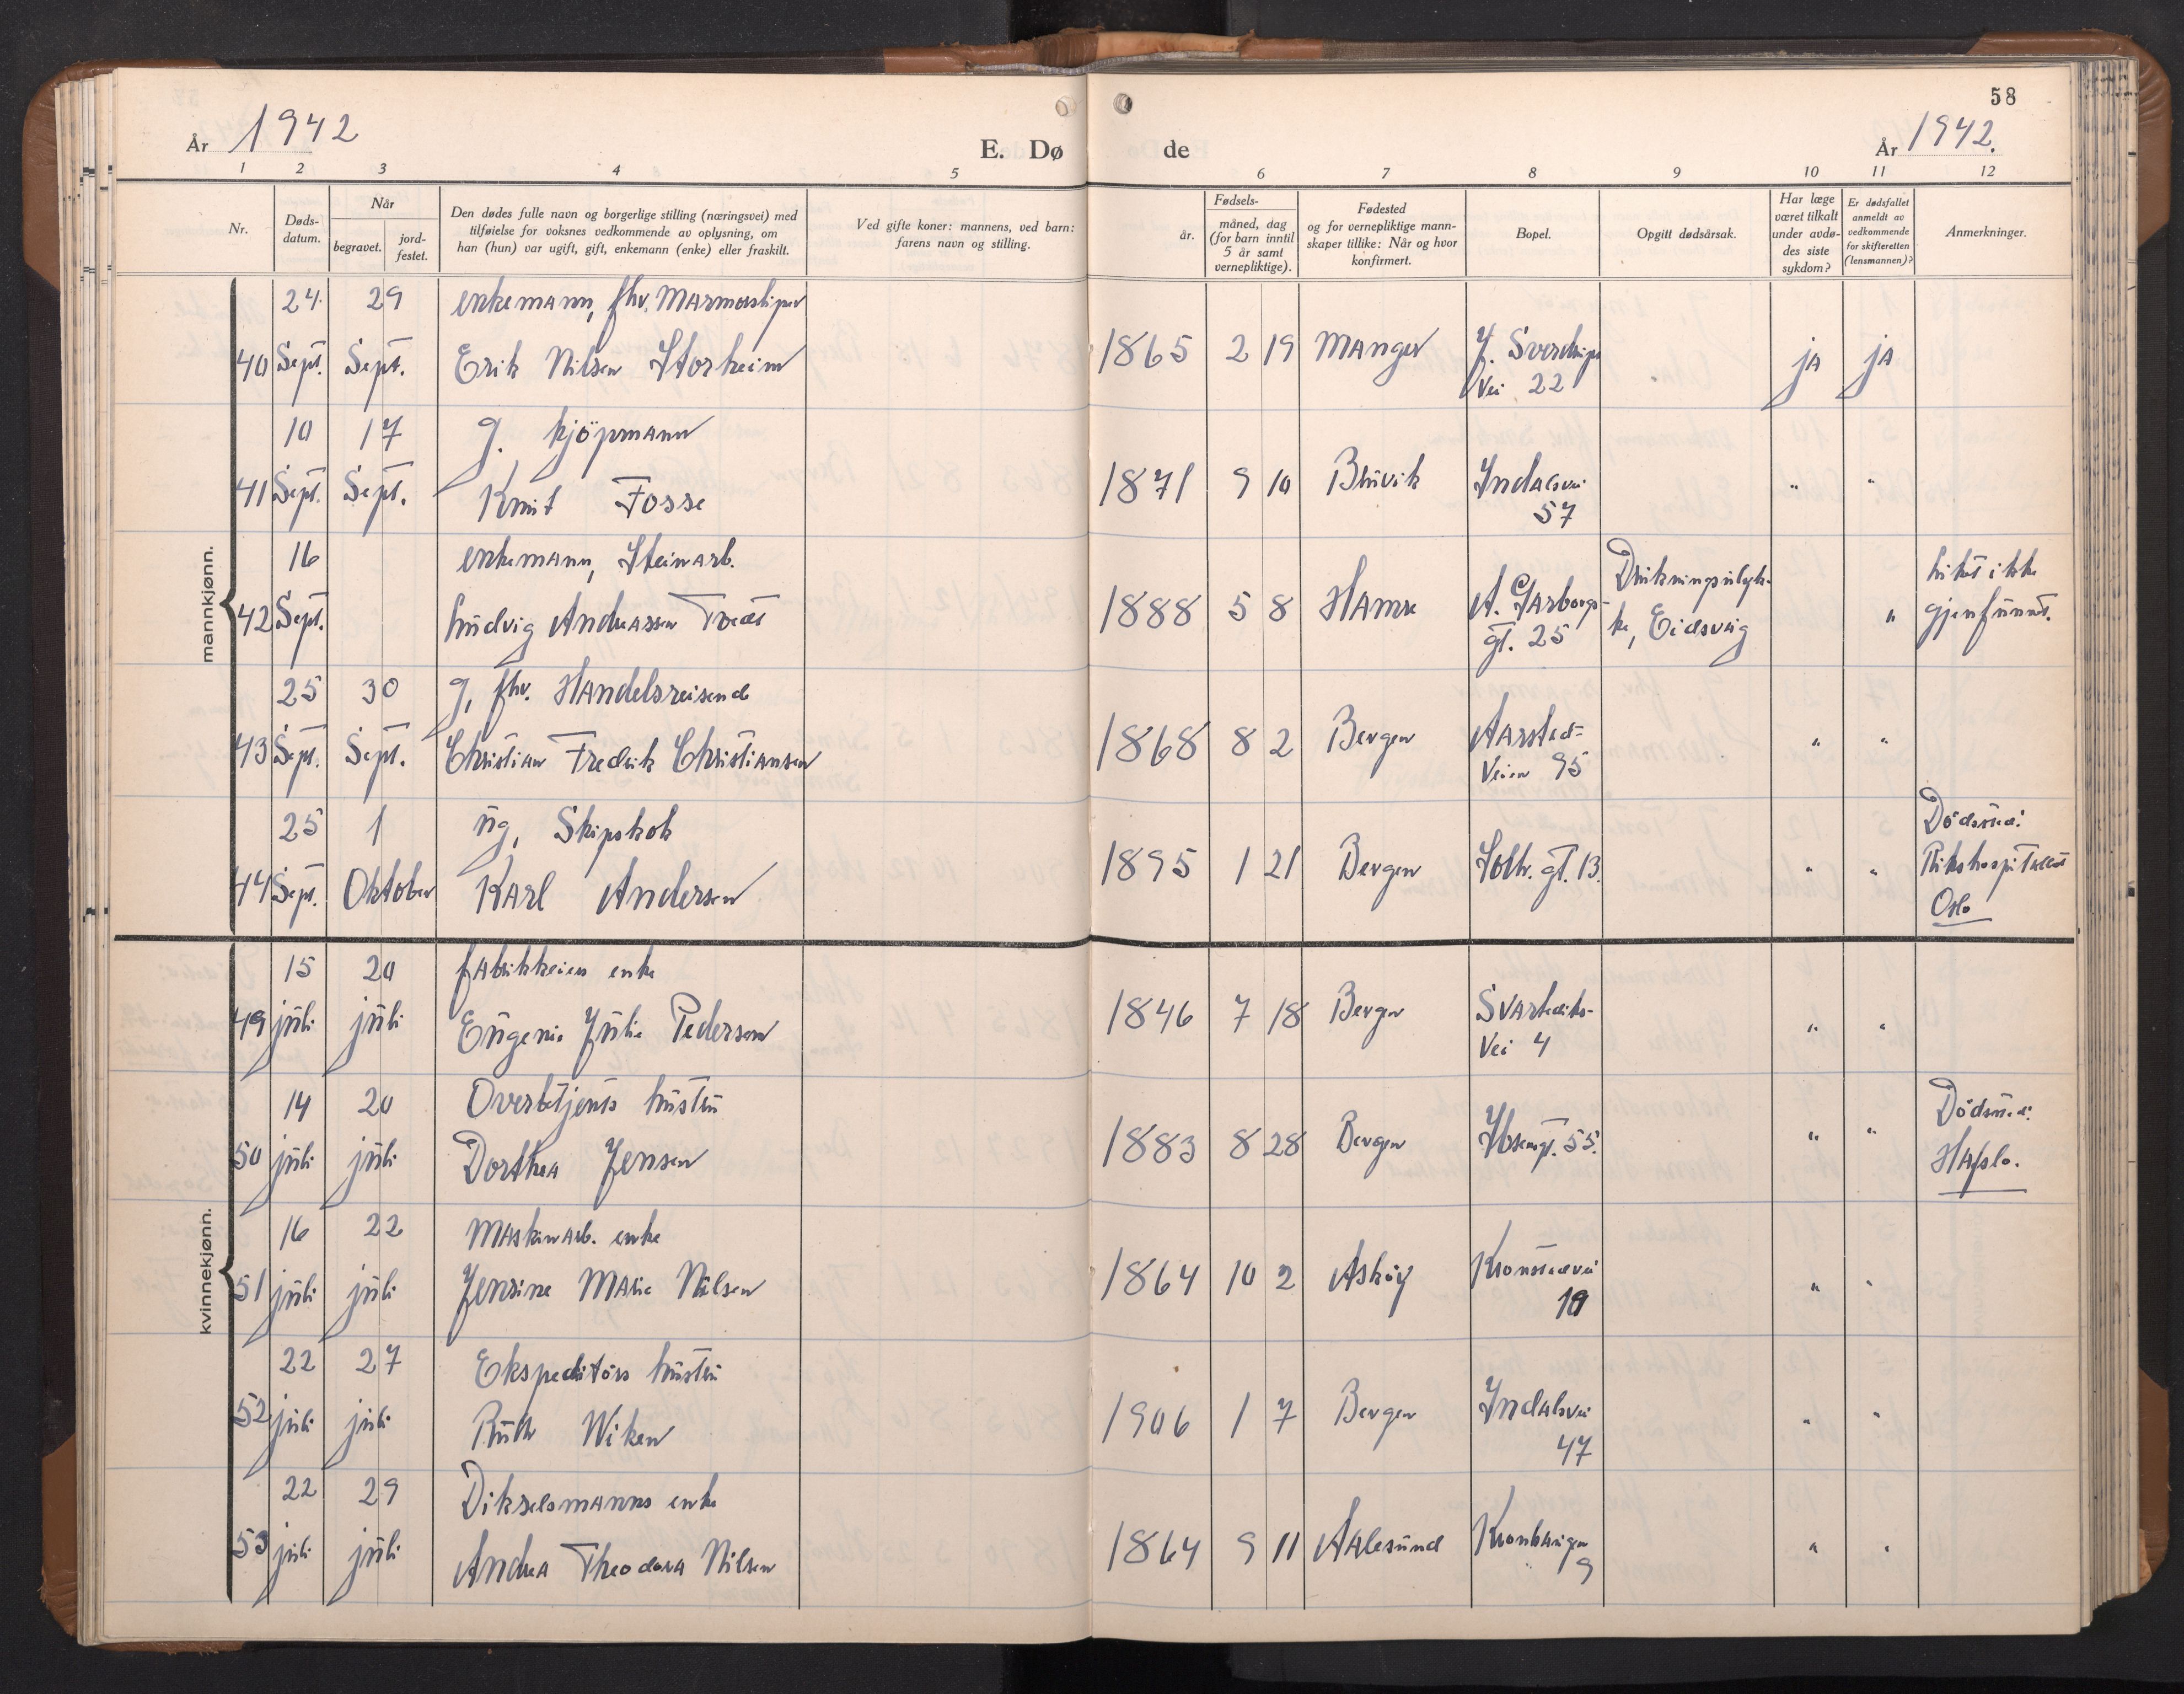 58
År 1942
E. Dø
de
År 1942.
1 2 3 4 5
6 7 8 9 10 11 12
Nr.
Døds-
datum.
Når
begravet.
jord-
festet.
Den dødes fulle navn og borgerlige stilling (næringsvei) med
tilføielse for voksnes vedkommende av oplysning, om
han (hun) var ugift, gift, enkemann (enke) eller fraskilt.
Ved gifte koner: mannens, ved barn:
farens navn og stilling.
Fødsels-
år.
måned, dag
(for barn inntil
5 år samt
vernepliktige).
Fødested
og for vernepliktige mann-
skaper tillike: Når og hvor
konfirmert.
Bopel.
Opgitt dødsårsak.
Har læge
været tilkalt
under avdø-
des siste
sykdom?
Er dødsfallet
anmeldt av
vedkommende
for skifteretten
(lensmannen)?
Anmerkninger.
mannkjønn.
24 29 enkemann, fhv. Marmorsliper
40 Sept. Sept. Erik Nilsen Storheim 1865 2 19 Manger J. Sverdrups
Vei 22 ja ja
10 17 g. kjöpmann
41 Sept. Sept. Knut Fosse 1871 9 10 Bruvik Indalsvei
57 " "
16 enkemann, Steinarb.
42 Sept. Ludvig Andreassen 1888 5 8 Hamre A. Garborgs-
gt. 25
Drukningsulyk-
ke, Eidsvåg
"
Liket ikke
gjenfunnet.
25 30 g, fhv. Handelsreisende
43 Sept. Sept. Christian Fredrik Christiansen 1868 8 2 Bergen Aarstad-
Veien 95 " "
25 1 ug, Skipskok
44 Sept. Oktober Karl Andersen 1895 1 21 Bergen Solh. gt. 13. " "
Dödsted:
Rikshospitalet
Oslo
kvinnekjønn.
15 20 fabrikkeiers enke
49 juli juli Eugenie Julie Pedersen 1846 7 18 Bergen Svartediks-
Vei 4 " "
14 20 Overbetjents hustru
50 juli juli Dorthea Jensen 1883 8 28 Bergen Ibsensgt. 55. " "
Dödsted:
Hafslo.
16 22 Maskinarb. enke
51 juli juli Jensine Marie Nilsen 1864 10 2 Askøy Kronstadvei
10 " "
22 27 Ekspeditörs hustru
52 juli juli Ruth Wiken 1906 1 7 Bergen Indalsvei
47 " "
22 29 Dikselsmanns enke
53 juli juli Andrea Theodora Nilsen 1864 9 11 Aalesund Kronborgen
9 " "